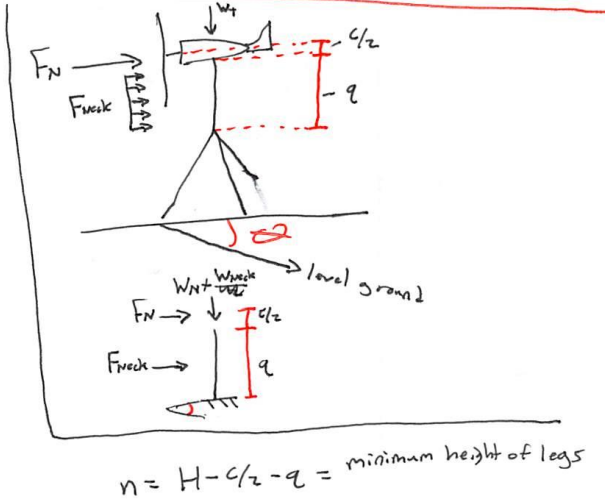 W+
c/2
FN
q
FNeck
level ground
WN + WNeck
FN
c/2
FNeck
q
n = H - c/2 - q = minimum height of legs